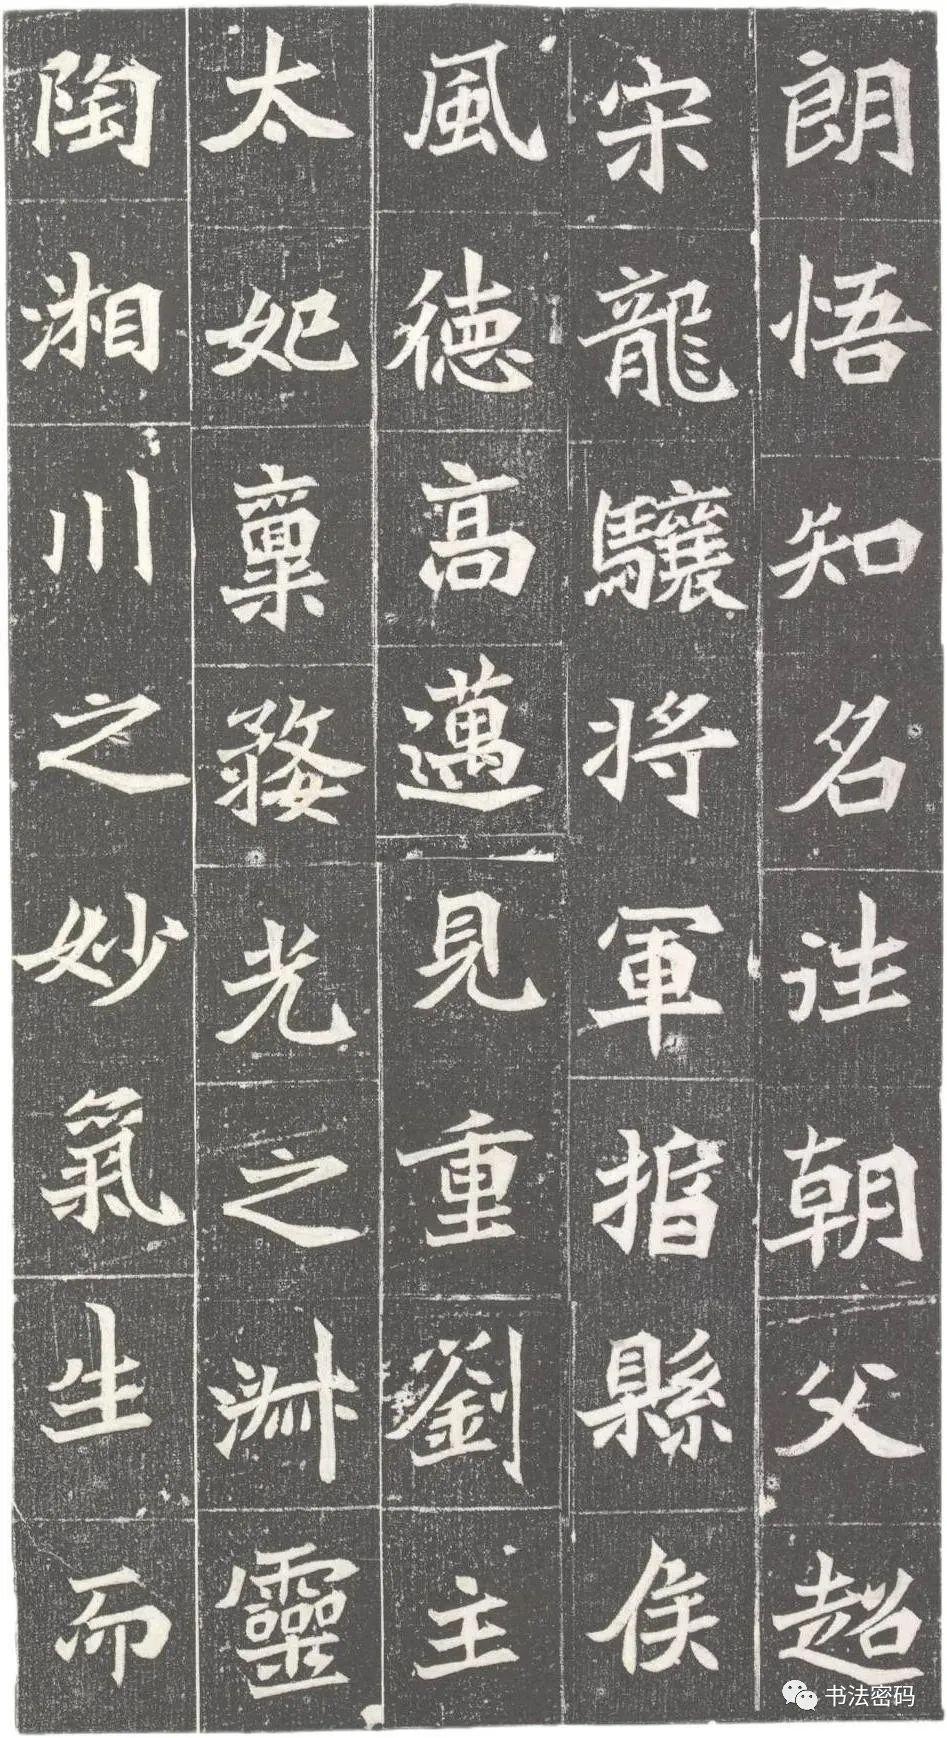 朗悟知名注朝父超
宋龍驤將軍揟縣侯
風德高邁見重劉主
太妃稟婺光之淋靈
陶湘川之妙氣生而
书法密码